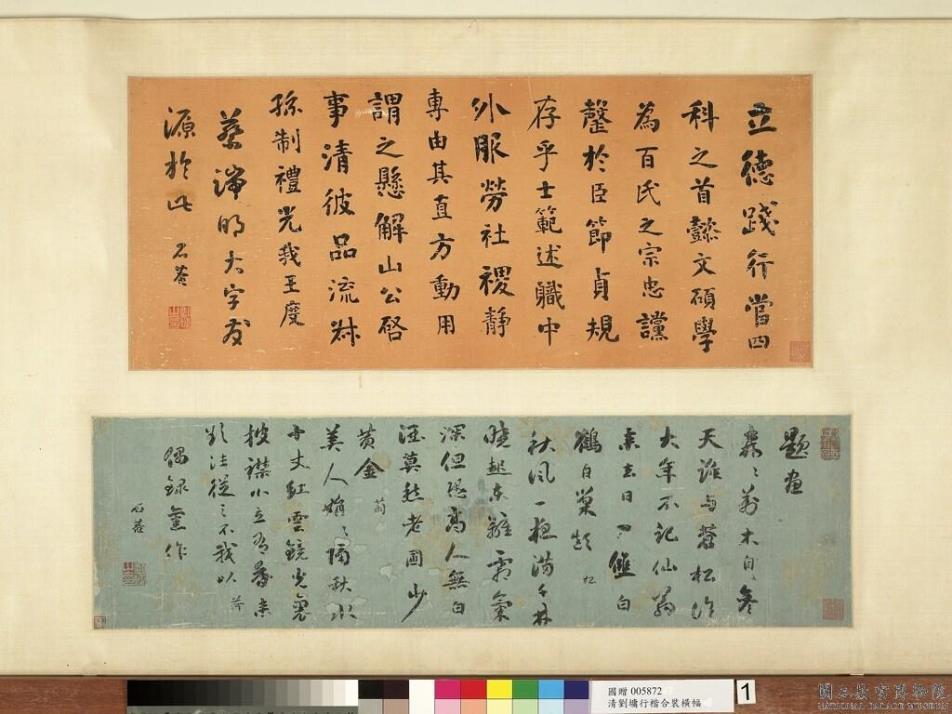 立德踐行當四
科之首懿文碩學
為百氏之宗忠讜
罄於臣節貞規
存乎士範述職中
外服勞社稷靜
專由其直方動用
謂之懸解山公啓
事清彼品流叔
孫制禮光我王度
蔡端明大字發
源於此
石菴
題畫
森森萬木自參
天誰與蒼松作
大年不記仙翁
來去日
白
鶴自巢顛 松
秋風一夜滿千林
曉起東籬霜氣
深但恐高人無白
酒莫愁老圃少
黃金 菊
美人娟娟隔秋水
十丈紅雲鏡光裏
披襟小立看
偶錄舊作
石菴
國贈 005872
清劉墉行楷合裝橫幅
1
國立故宮博物院
NATIONAL PALACE MUSEUM